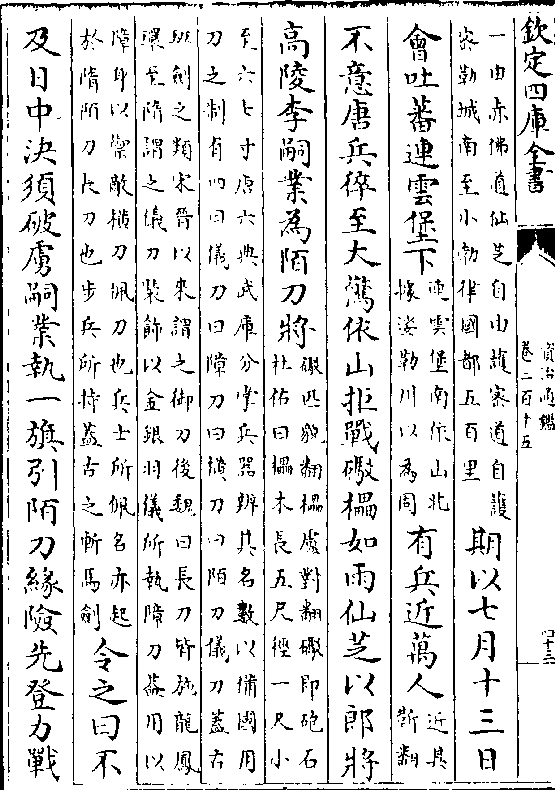 欽定四庫全書
資治通鑑
卷二百十五
四十三
一由赤佛道仙芝自由護密道自護
密勒城南至小勃律國都五百里
期以七月十三日
會吐蕃連雲堡下
連雲堡南依山北
據娑勒川以為固
有兵近萬人
近其
靳翻
不意唐兵猝至大驚依山拒戰礮櫑如雨仙芝以郎將
高陵李嗣業為陌刀將
礮匹貌翻櫑盧對翻礮即砲石
杜佑曰櫑木長五尺徑一尺小
至六七寸唐六典武庫分掌兵器辨其名數以備國用
刀之制有四曰儀刀曰障刀曰橫刀曰陌刀儀刀蓋古
班劍之類宋晉以來謂之御刀後魏曰長刀皆施龍鳳
環至隋謂之儀刀裝飾以金銀羽儀所執障刀蓋用以
障身以禦敵橫刀佩刀也兵士所佩名亦起
於隋陌刀長刀也步兵所持蓋古之斬馬劍
令之曰不
及日中決須破虜嗣業執一旗引陌刀緣險先登力戰